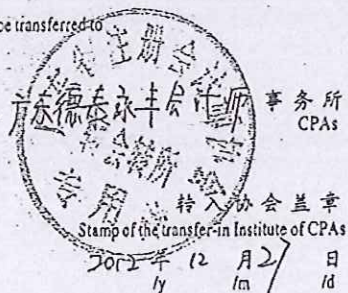 be transferred to
注册会
德泰永丰会计师 事务所
CPAs
转所
专用
转入协会盖章
Stamp of the transfer-in Institute of CPAs
2012 年 12 月 21 日
/y /m /d